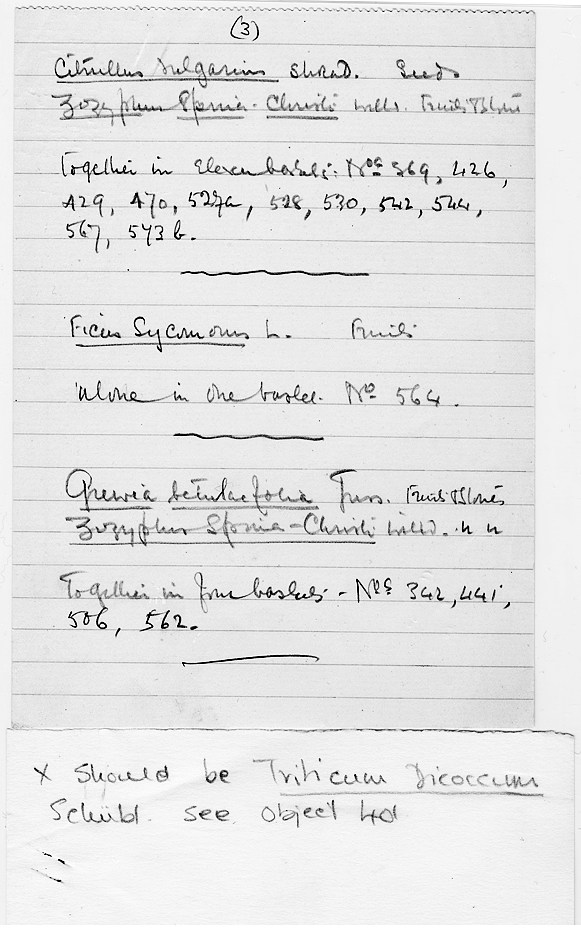 (3)
Citrullus vulgarius shrad. Seeds
Zozyphus Spina-Christi willd. Fruits & Stones
Together in Eleven baskets: Nos 369, 426,
429, 470, 527a, 528, 530, 542, 544,
567, 573 b.
Ficus Sycomorus L. Fruits
alone in one basket. No 564.
Grewia betulaefolia Juss. Fruits & Stones
Zozyphus Spina-Christi willd. " "
Together in four baskets - Nos 342, 441,
506, 562.
x Should be Triticum Dicoccum
Schübl. see object